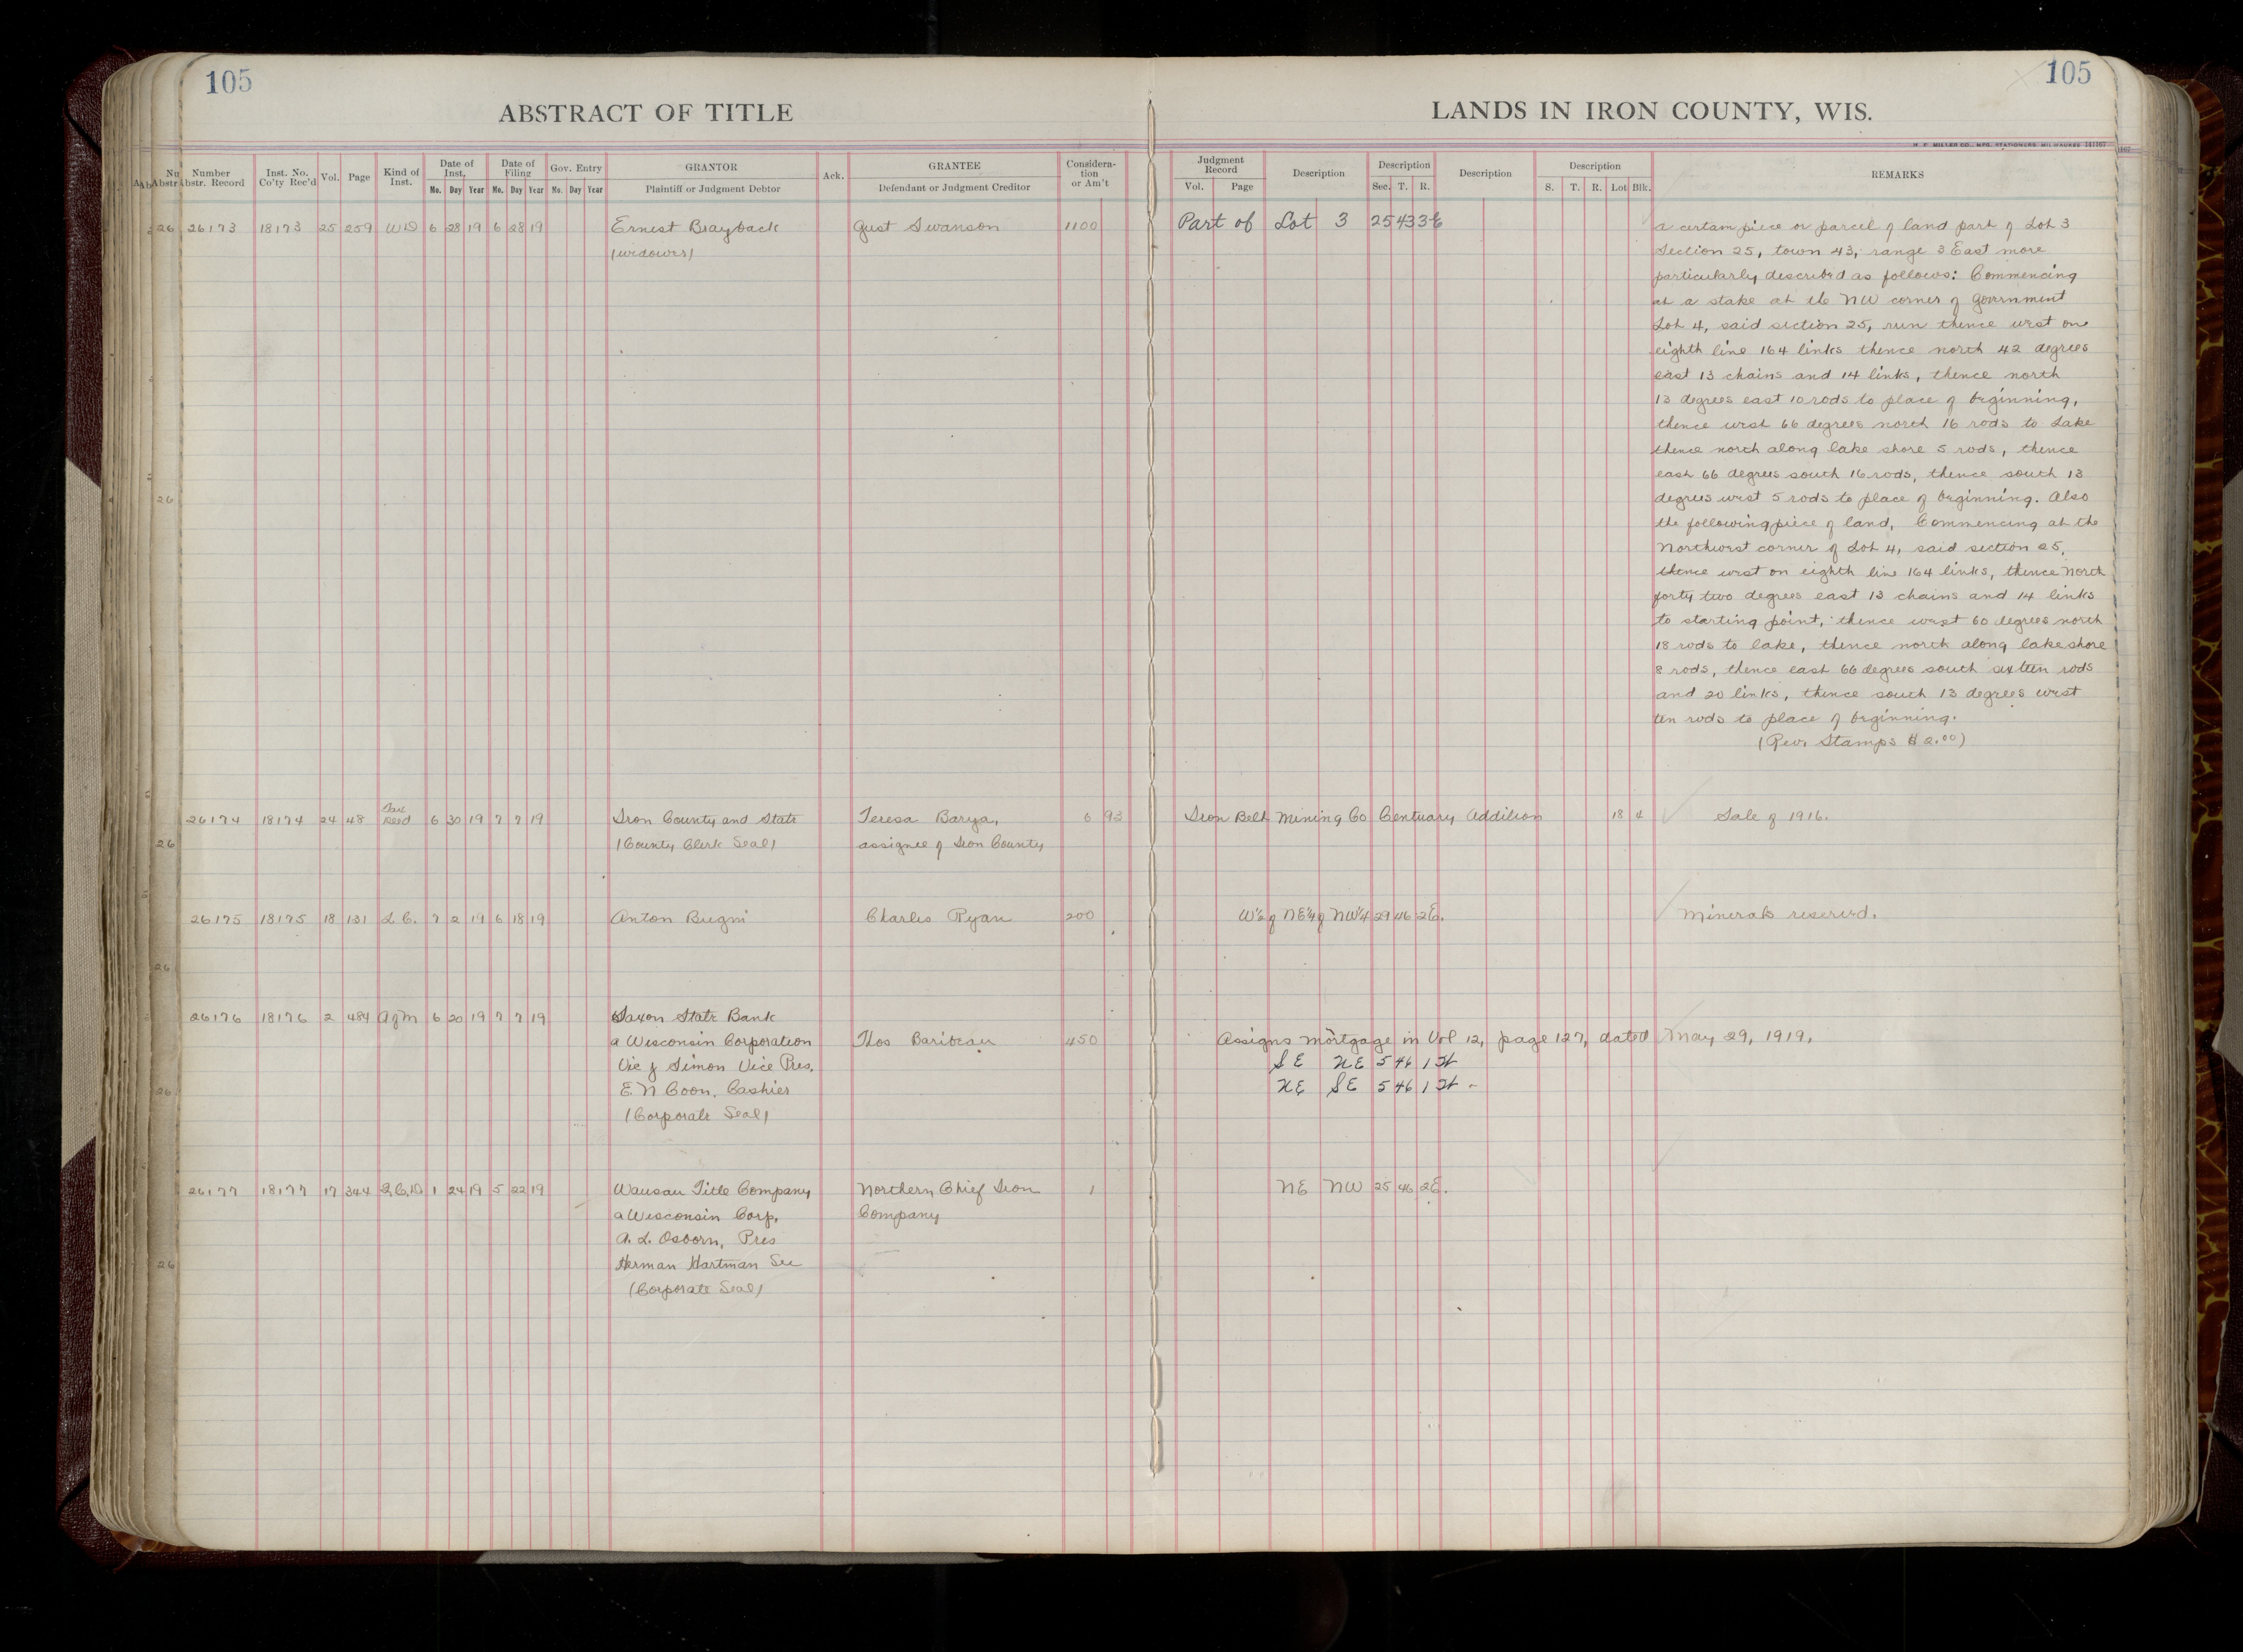 105
105
ABSTRACT OF TITLE
LANDS IN IRON COUNTY, WIS.
H. C. MILLER CO., MFG. STATIONERS, MILWAUKEE 141167
Number Abstr. Record Inst. No. Co'ty Rec'd Vol. Page Kind of Inst. Date of Inst. Date of Filing Gov. Entry GRANTOR Ack. GRANTEE Considera-tion or Am't Judgment Record Description Description Description Description REMARKS
Mo. Day Year Mo. Day Year Mo. Day Year Plaintiff or Judgment Debtor Defendant or Judgment Creditor Vol. Page Sec. T. R. S. T. R. Lot Blk.
26173 18173 25 259 WD 6 28 19 6 28 19 Ernest Brayback Gust Swanson 1100 Part of Lot 3 25 43 3E a certain piece or parcel of land part of Lot 3
(widower) Section 25, town 43, range 3 East more
particularly described as follows: Commencing
at a stake at the NW corner of government
Lot 4, said section 25, run thence west on
eighth line 164 links thence north 42 degrees
east 13 chains and 14 links, thence north
13 degrees east 10 rods to place of beginning,
thence west 66 degrees north 16 rods to Lake
thence north along lake shore 5 rods, thence
east 66 degrees south 16 rods, thence south 13
degrees west 5 rods to place of beginning. Also
the following piece of land, Commencing at the
Northwest corner of Lot 4, said section 25,
thence west on eighth line 164 links, thence North
forty two degrees east 13 chains and 14 links
to starting point, thence west 60 degrees north
18 rods to lake, thence north along lake shore
8 rods, thence east 66 degrees south sixteen rods
and 20 links, thence south 13 degrees west
ten rods to place of beginning.
(Rev. Stamps $2.00)
26174 18174 24 48 Tax Deed 6 30 19 7 7 19 Iron County and State Teresa Barya, 6 93 Iron Belt Mining Co Centuary Addition 18 4 Sale of 1916.
(County Clerk Seal) assignee of Iron County
26175 18175 18 131 L.C. 7 2 19 6 18 19 Anton Bugni Charles Ryan 200 W½ of NE¼ of NW¼ 29 46 2E. Minerals reserved.
26176 18176 2 484 A of M 6 20 19 7 7 19 Saxon State Bank
a Wisconsin Corporation Thos Baribeau 450 Assigns mortgage in Vol 12, page 127, dated May 29, 1919.
Vic J Simon Vice Pres. SE NE 5 46 1 W
E N Coon, Cashier NE SE 5 46 1 W
(Corporate Seal)
26177 18177 17 344 Q.C.D 1 24 19 5 22 19 Wausau Title Company Northern Chief Iron 1 NE NW 25 46 2E.
a Wisconsin Corp. Company
A. L. Osborn, Pres
Herman Hartman Sec
(Corporate Seal)